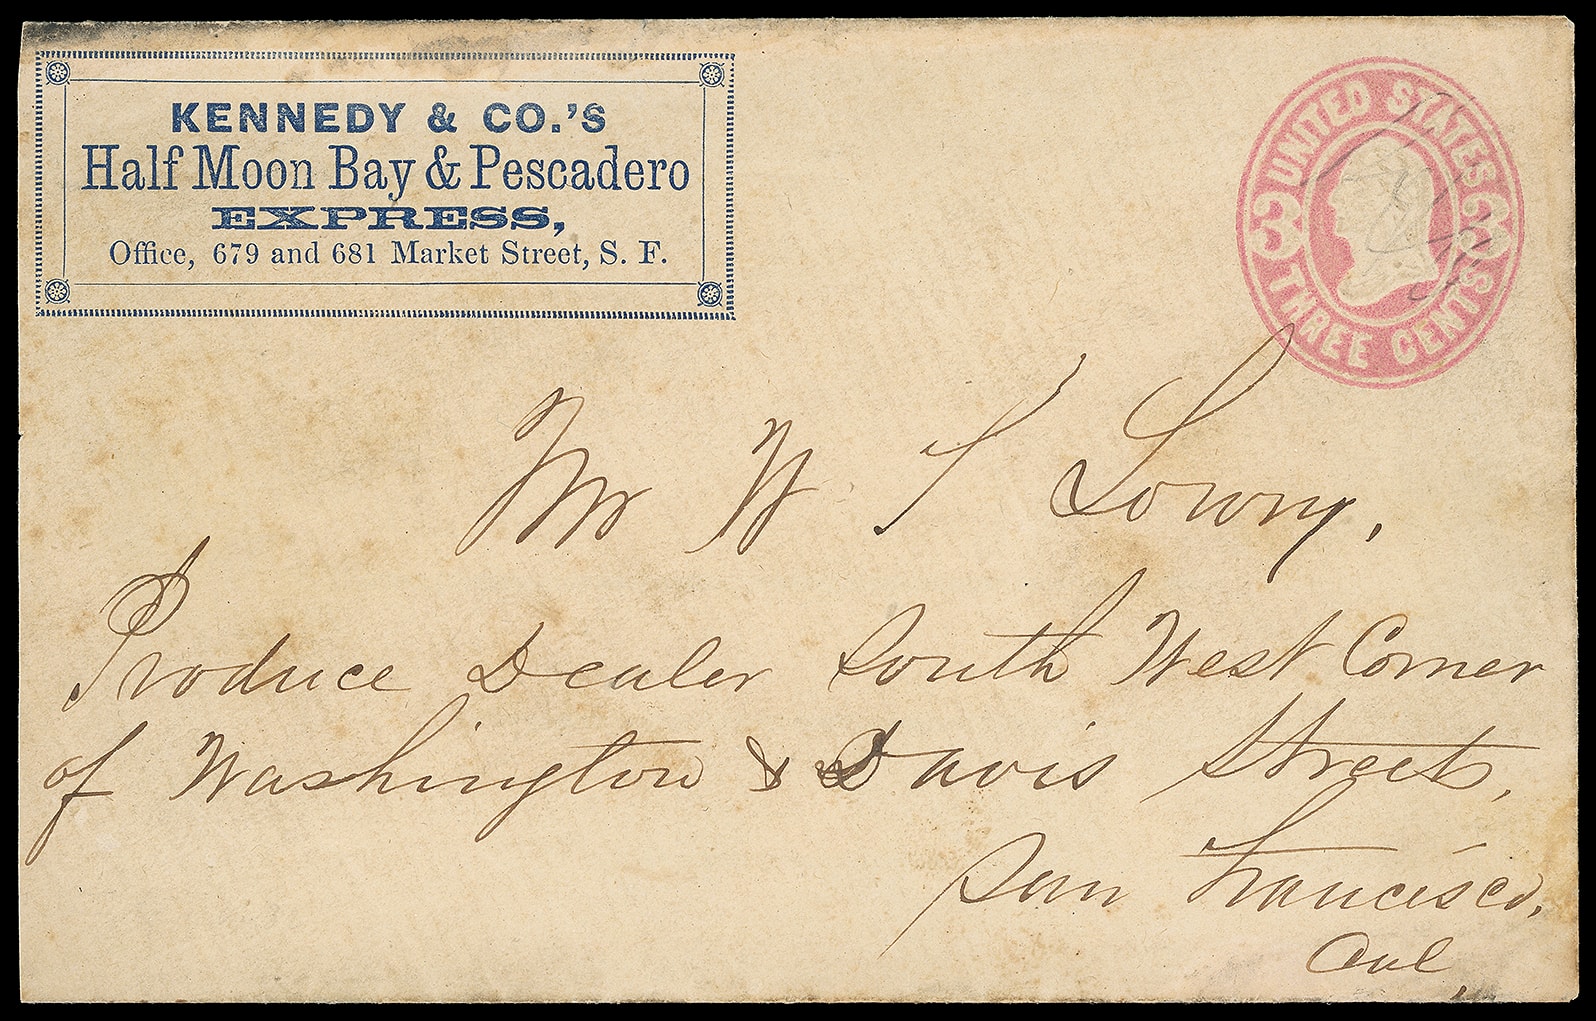 KENNEDY & CO.'S
Half Moon Bay & Pescadero
EXPRESS,
Office, 679 and 681 Market Street, S. F.
UNITED STATES
3 3
THREE CENTS
Mr W S Lowry,
Produce Dealer South West Corner
of Washington & Davis Street,
San Francisco,
Cal